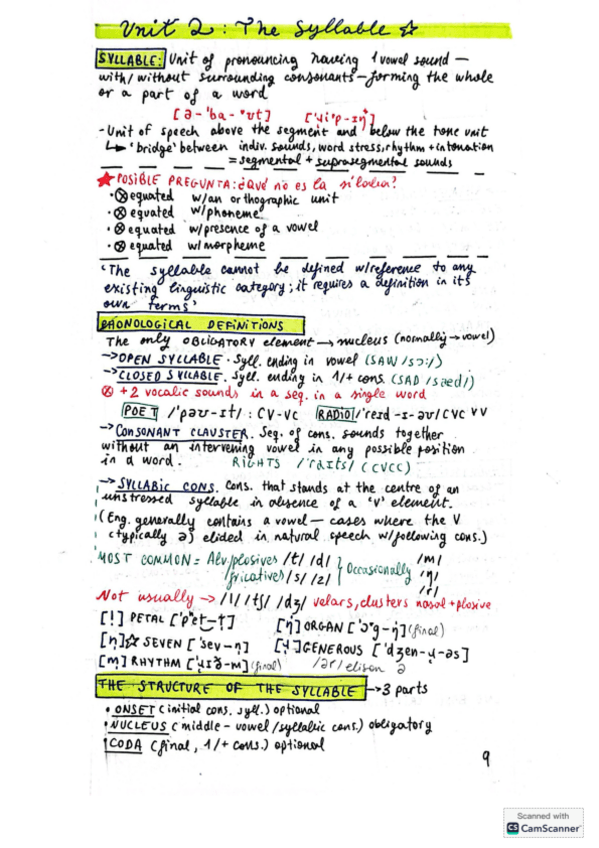 Unit 2: The Syllable ☆
SYLLABLE: Unit of pronouncing having 1 vowel sound —
with/without surrounding consonants — forming the whole
or a part of a word
-Unit of speech above the segment and below the tone unit
↳ 'bridge' between indiv. sounds, word stress, rhythm + intonation
= segmental + suprasegmental sounds
★ POSIBLE PREGUNTA: ¿Qué no es la sílaba?
· ⊗ equated w/an orthographic unit
· ⊗ equated w/phoneme
· ⊗ equated w/presence of a vowel
· ⊗ equated w/morpheme
'The syllable cannot be defined w/reference to any
existing linguistic category; it requires a definition in its
own terms'
PHONOLOGICAL DEFINITIONS
The only OBLIGATORY element → nucleus (normally → vowel)
→ OPEN SYLLABLE. Syll. ending in vowel (SAW /sɔː/)
→ CLOSED SYLLABLE. Syll. ending in 1/+ cons. (SAD /sæd/)
⊗ +2 vocalic sounds in a seq. in a single word
POET /'pəʊ-ɪt/: CV-VC RADIO /'reɪd-ɪ-əʊ/ CVC V V
→ CONSONANT CLAUSTER. Seq. of cons. sounds together
without an intervening vowel in any possible position
in a word. RIGHTS /'raɪts/ (CVCC)
→ SYLLABIC CONS. Cons. that stands at the centre of an
unstressed syllable in absence of a 'V' element.
(Eng. generally contains a vowel — cases where the V
(typically ə) elided in natural speech w/following cons.)
MOST COMMON = Alv/plosives /t/ /d/ } Occasionally /m/
/fricatives /s/ /z/ /ŋ/
/r/
Not usually → /l/ /tʃ/ /dʒ/ velars, clusters nasal + plosive
[l̩] PETAL [ŋ̍] ORGAN (final)
[n̩] ☆ SEVEN ['sev-n̩] GENEROUS
[m̩] RHYTHM (final) /ər/ elision ə
THE STRUCTURE OF THE SYLLABLE → 3 parts
• ONSET (initial cons. syll.) optional
• NUCLEUS (middle - vowel/syllabic cons.) obligatory
CODA (final, 1/+ cons.) optional
9
Scanned with
CS CamScanner